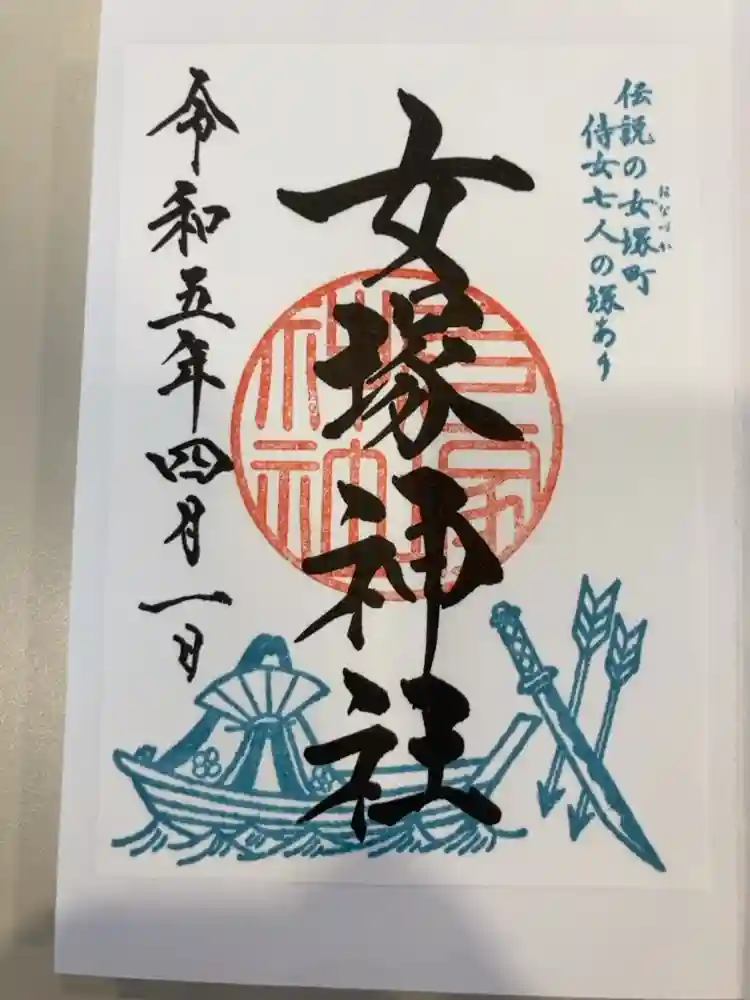 伝説の女塚町
侍女七人の塚あり
女塚神社
令和五年四月一日